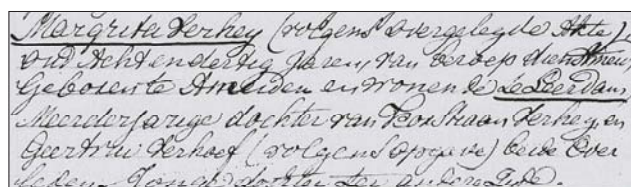 Margrita Verhey (volgens overgelegde Akte),
oud Achtendertig jaren, van beroep dienstmeid,
Geboren te Ameiden en wonende te Leerdam,
Meerderjarige dochter van Verhey en
Geertrui Verhoef (volgens opgave) beide Over
leden. Jonge dochter ter andere zyde.